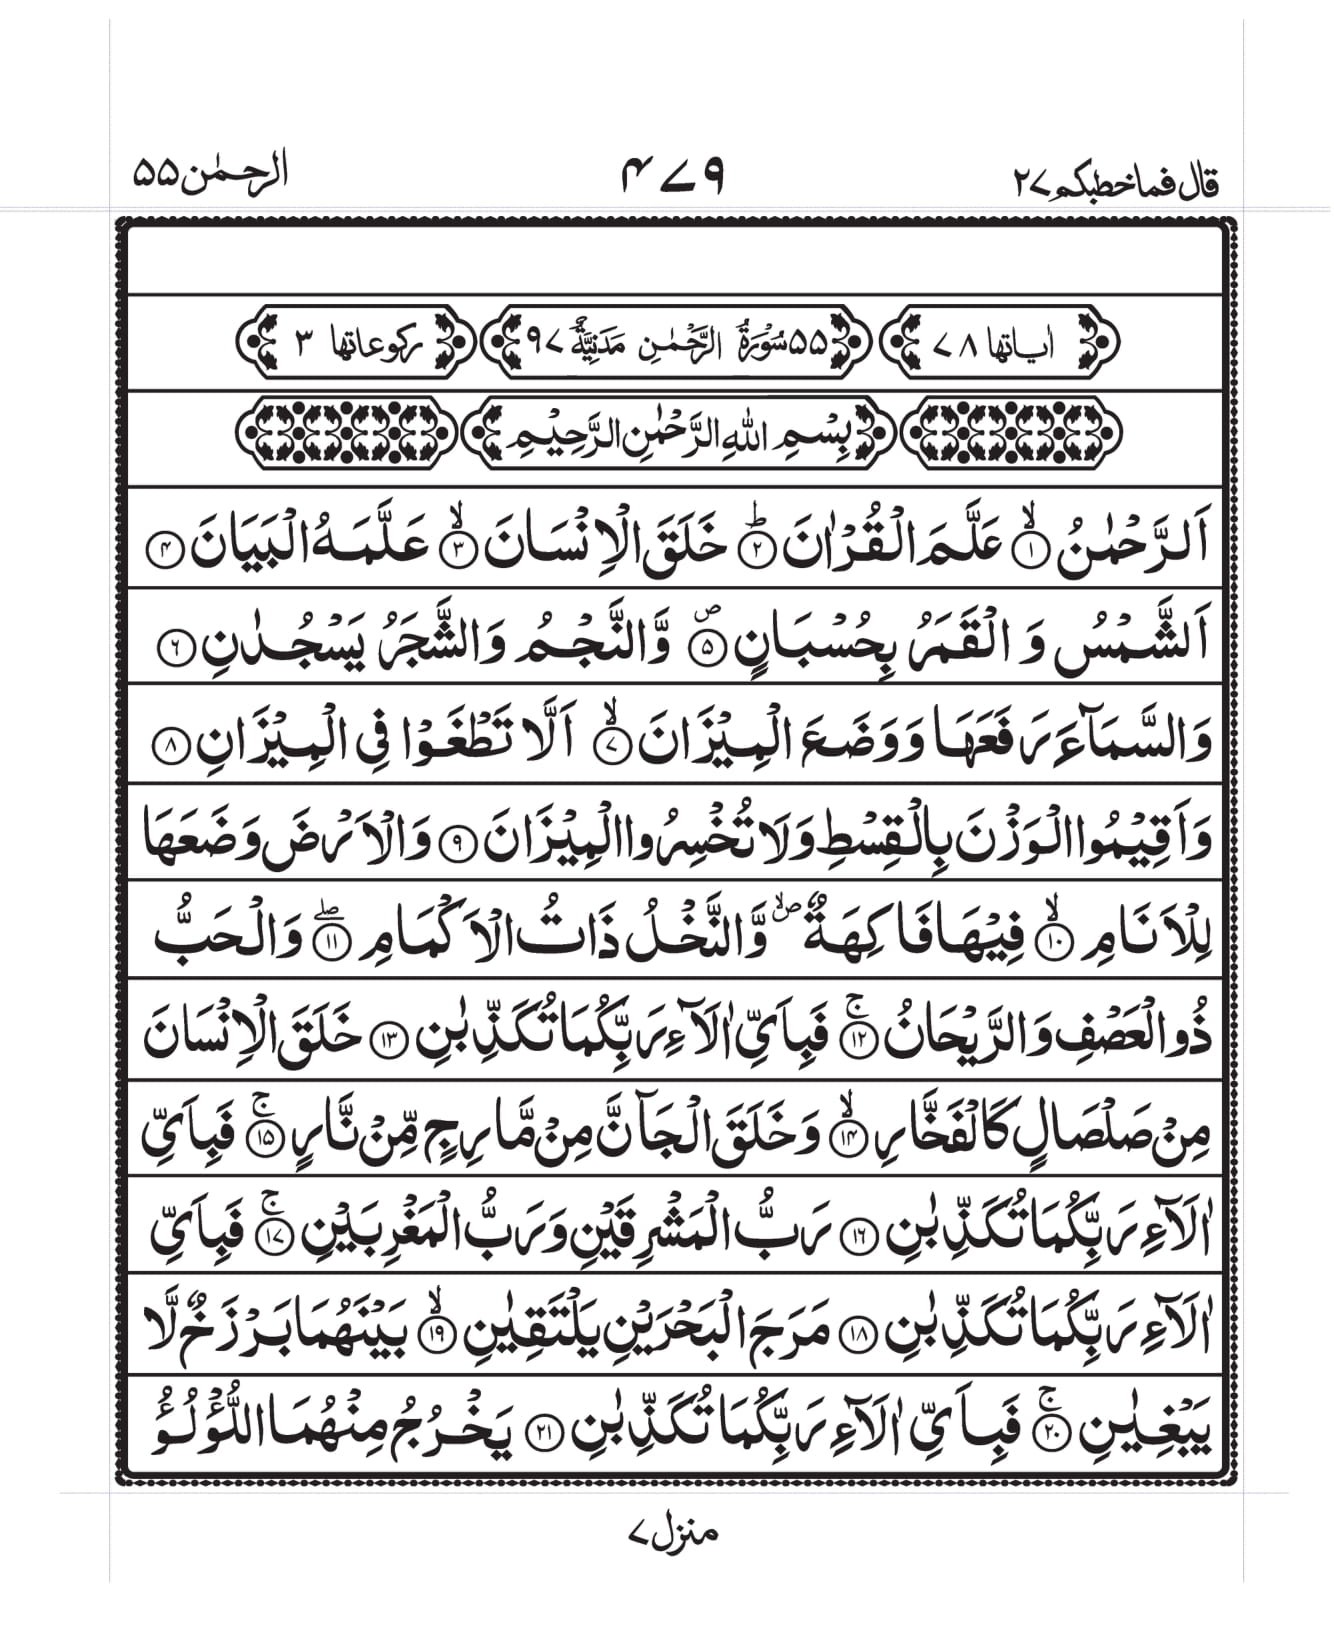 قال فما خطبكم ۲۷ ۴۷۹ الرحمٰن ۵۵
اٰیاتها ۷۸ ۵۵ سُوْرَةُ الرَّحْمٰنِ مَدَنِيَّةٌ ۹۷ رکوعاتها ۳
بِسْمِ اللّٰهِ الرَّحْمٰنِ الرَّحِيْمِ
اَلرَّحْمٰنُ ۙ﴿۱﴾ عَلَّمَ الْقُرْاٰنَ ؕ﴿۲﴾ خَلَقَ الْاِنْسَانَ ۙ﴿۳﴾ عَلَّمَهُ الْبَيَانَ ﴿۴﴾
اَلشَّمْسُ وَ الْقَمَرُ بِحُسْبَانٍ ۪﴿۵﴾ وَّالنَّجْمُ وَالشَّجَرُ يَسْجُدٰنِ ﴿۶﴾
وَالسَّمَآءَ رَفَعَهَا وَوَضَعَ الْمِيْزَانَ ۙ﴿۷﴾ اَلَّا تَطْغَوْا فِي الْمِيْزَانِ ﴿۸﴾
وَاَقِيْمُوا الْوَزْنَ بِالْقِسْطِ وَلَا تُخْسِرُوا الْمِيْزَانَ ﴿۹﴾ وَالْاَرْضَ وَضَعَهَا
لِلْاَنَامِ ۙ﴿۱۰﴾ فِيْهَا فَاكِهَةٌ ۪ۙ وَّالنَّخْلُ ذَاتُ الْاَكْمَامِ ۖ﴿۱۱﴾ وَالْحَبُّ
ذُو الْعَصْفِ وَالرَّيْحَانُ ۚ﴿۱۲﴾ فَبِاَيِّ اٰلَآءِ رَبِّكُمَا تُكَذِّبٰنِ ﴿۱۳﴾ خَلَقَ الْاِنْسَانَ
مِنْ صَلْصَالٍ كَالْفَخَّارِ ۙ﴿۱۴﴾ وَخَلَقَ الْجَآنَّ مِنْ مَّارِجٍ مِّنْ نَّارٍ ۚ﴿۱۵﴾ فَبِاَيِّ
اٰلَآءِ رَبِّكُمَا تُكَذِّبٰنِ ﴿۱۶﴾ رَبُّ الْمَشْرِقَيْنِ وَرَبُّ الْمَغْرِبَيْنِ ۚ﴿۱۷﴾ فَبِاَيِّ
اٰلَآءِ رَبِّكُمَا تُكَذِّبٰنِ ﴿۱۸﴾ مَرَجَ الْبَحْرَيْنِ يَلْتَقِيٰنِ ۙ﴿۱۹﴾ بَيْنَهُمَا بَرْزَخٌ لَّا
يَبْغِيٰنِ ۚ﴿۲۰﴾ فَبِاَيِّ اٰلَآءِ رَبِّكُمَا تُكَذِّبٰنِ ﴿۲۱﴾ يَخْرُجُ مِنْهُمَا اللُّؤْلُؤُ
منزل ۷